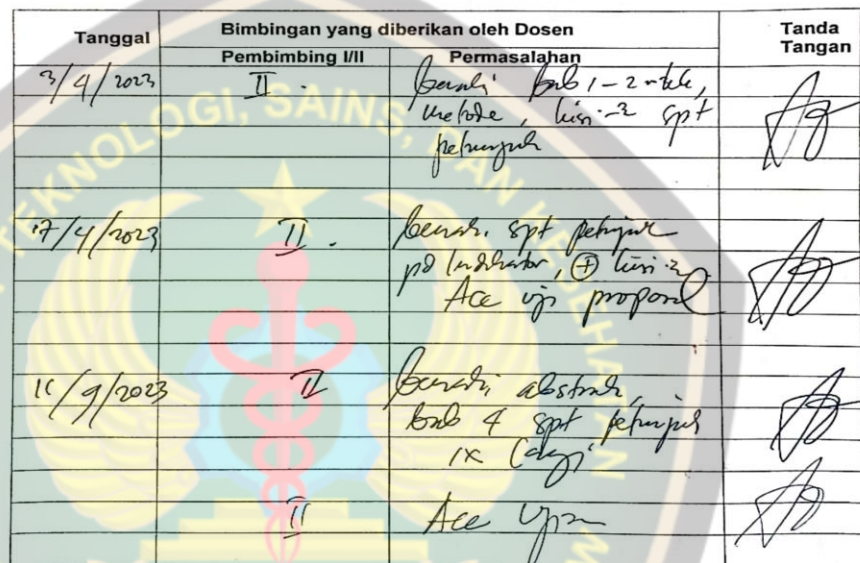 Tanggal
Bimbingan yang diberikan oleh Dosen
Tanda
Tangan
Pembimbing I/II
Permasalahan
3/4/2023
II.
benahi bab 1-2
metode, kisi-2 spt
petunjuk
17/4/2023
II.
benahi spt petunjuk
pd Indikator, + kisi-2
Acc uji proposal
11/9/2023
II
benahi abstrak,
bab 4 spt petunjuk
1x lagi
II
Acc Ujian
TEKNOLOGI, SAINS, DAN KESEHATAN